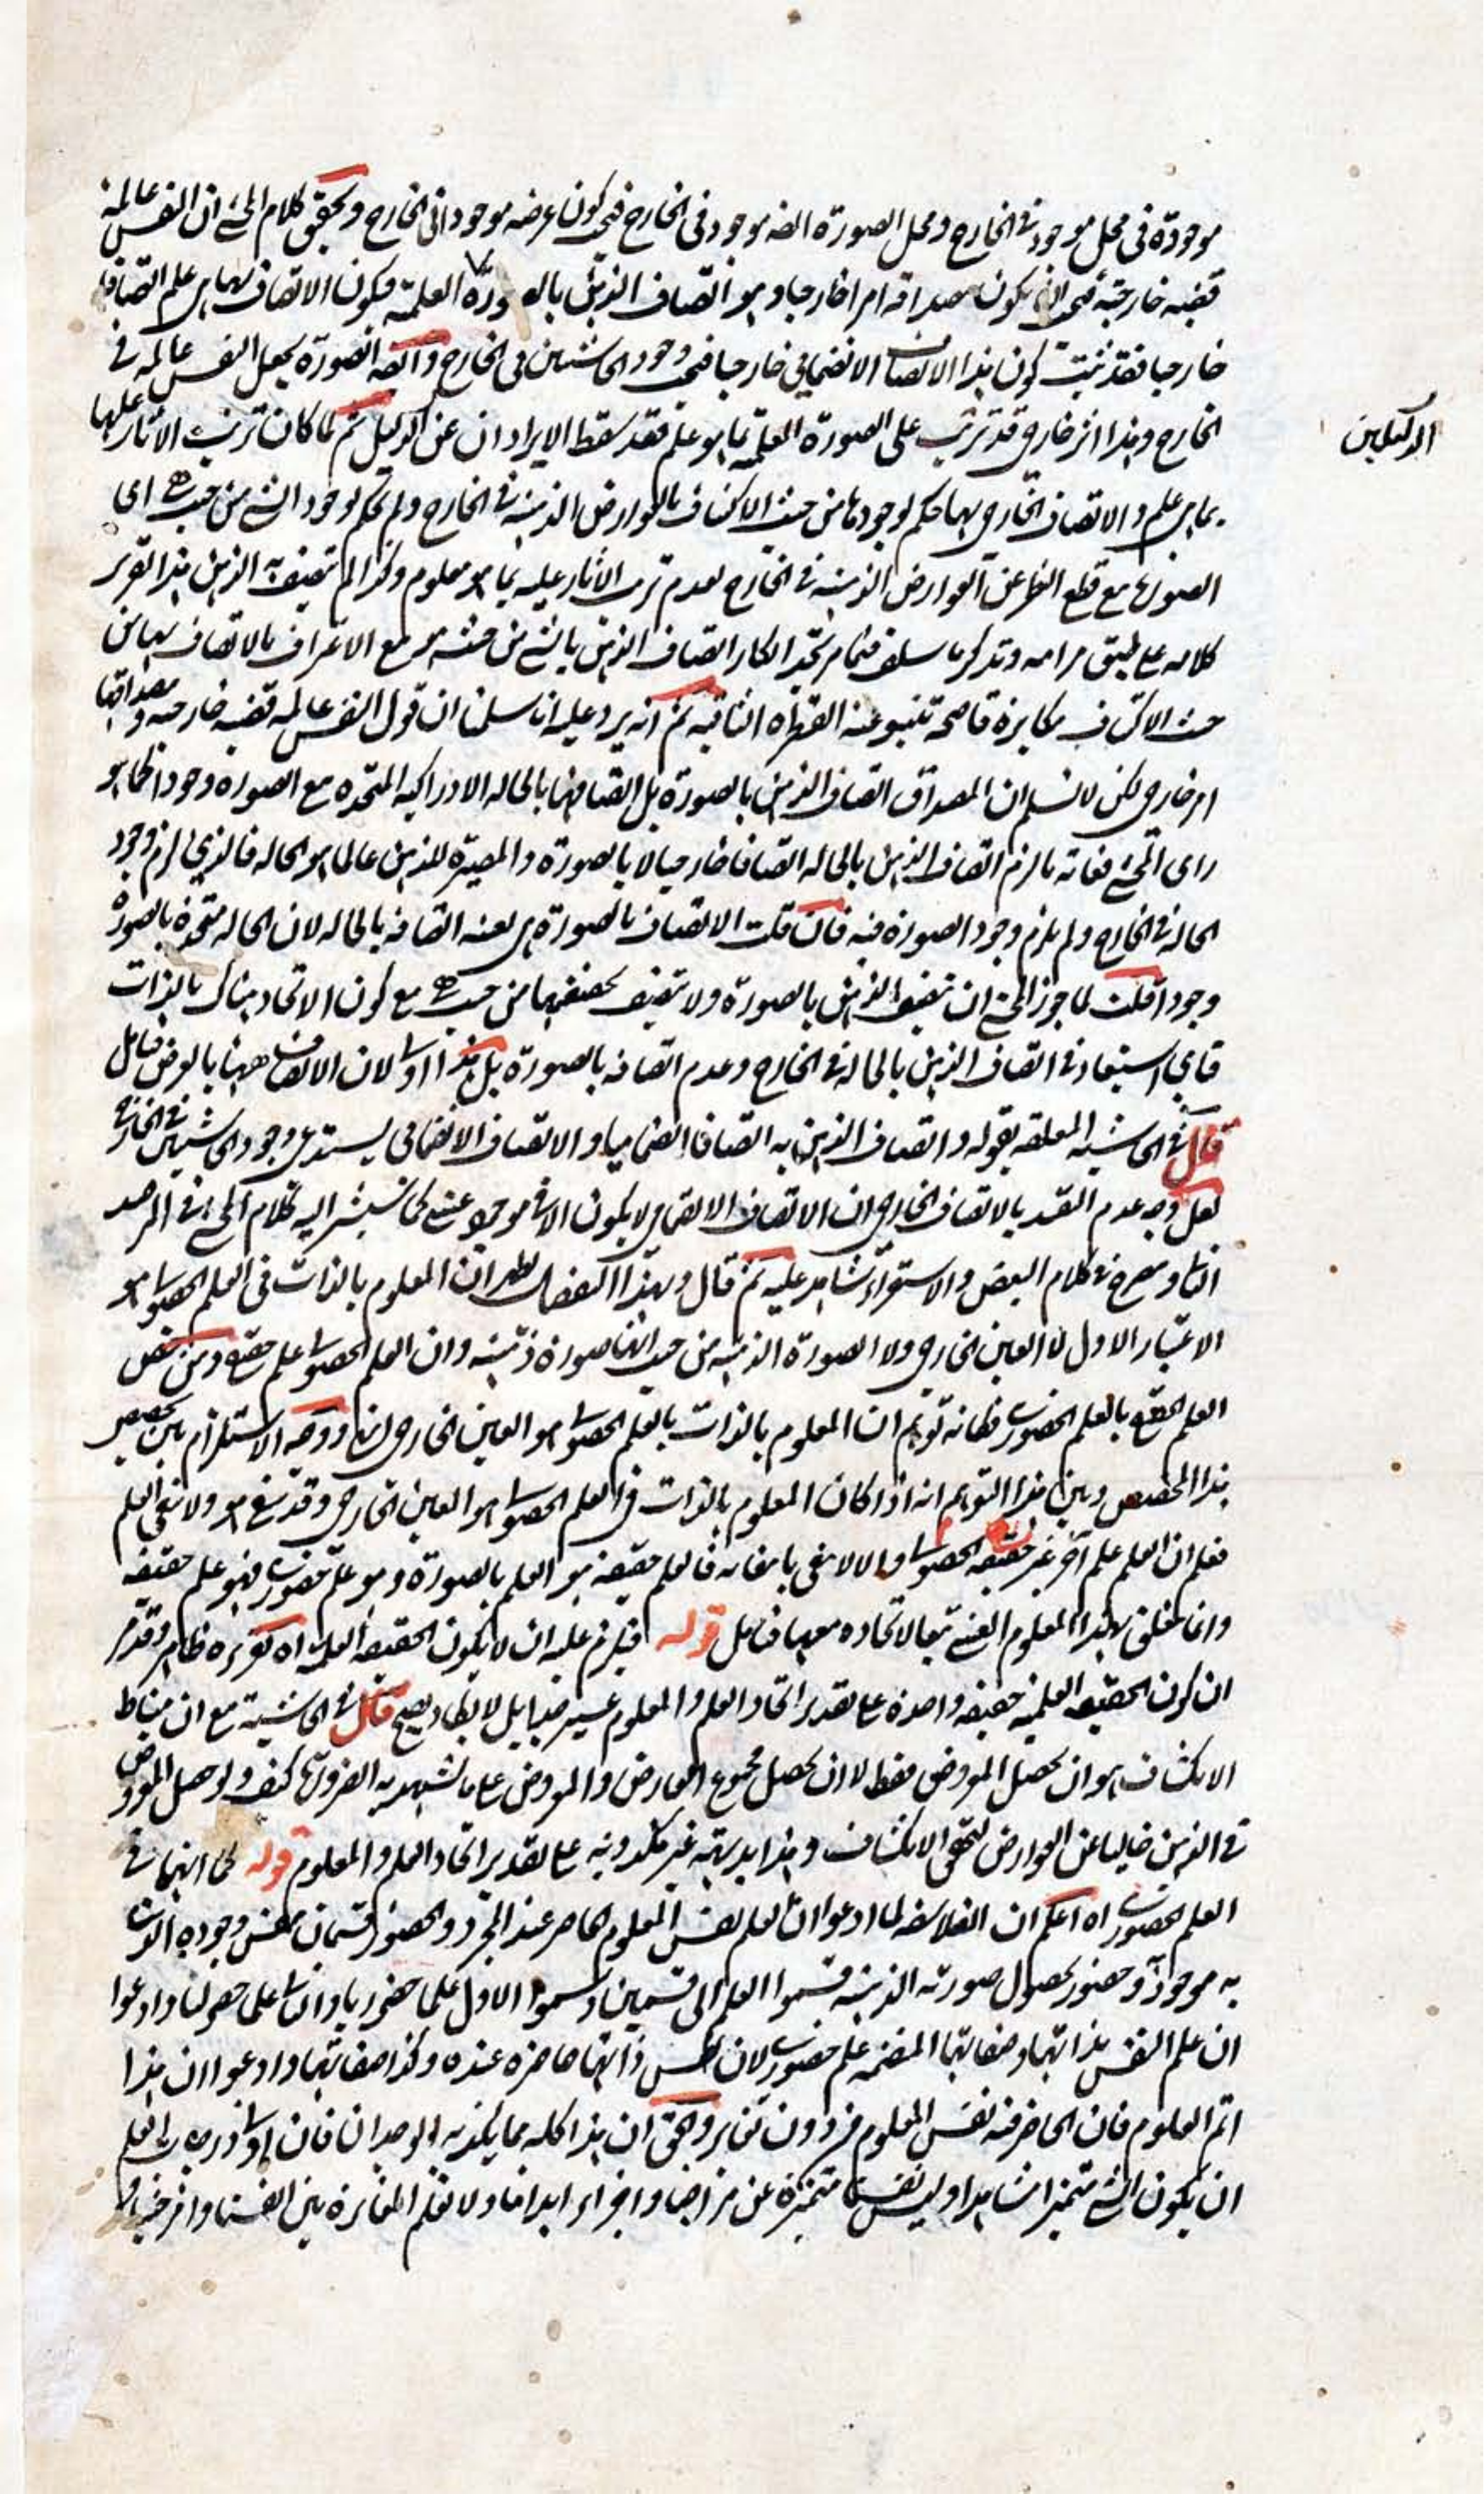 موجودة فى محل موجود فى الخارج ومحل الصورة الضه موجود فى الخارج فيكون عرضه موجودا فى الخارج وتحقيق كلام المحشى ان النفس عالمة
قضية خارجية فيجب ان يكون مصداقه امرا خارجيا وهو اتصاف الذهن بالصورة العلمية فيكون الاتصاف بها هى علم اتصافا
خارجيا فقد ثبت كون هذا الاتصاف الانضمامى خارجيا فيجب وجود الحاشيتين فى الخارج وايضا الصورة يجعل النفس عالمة فى
الخارج وهذا اثر خارجى قد ترتب على الصورة العلمية بما هو علم فقد سقط الايرادان عن الدليل ثم لما كان ترتب الاثار عليها
الدليلين
بما هى علم والاتصاف الخارجى بها حكم لوجودها من حيث الاكتناف بالعوارض الذهنية فى الخارج ولم يحكم لوجود الشى من حيث هى اى
الصورة مع قطع النظر عن العوارض الذهنية فى الخارج لعدم ترتب الاثار عليه بما هو معلوم وكذا لم يتصف به الذهن هذا تقرير
كلامه على طبق مرامه وتذكر ما سلف فيما مر تجد انكار اتصاف الذهن بالشى من حيث هى مع الاعتراف بالاتصاف بها من
حيث الاكتناف مكابرة فاضحة تنبو عنه الفطرة الثاقبة ثم انه يرد عليه انا سلمنا ان قول النفس عالمة قضية خارجية ومصداقها
امر خارجى لكن لا نسلم ان المصداق اتصاف الذهن بالصورة بل اتصافها بالحالة الادراكية المتحدة مع الصورة وجودا كما هو
راى المحشى فغاية ما لزم اتصاف الذهن بالحالة اتصافا خارجيا لا بالصورة والمصيرة للذهن عالما هو الحالة فالذى لزم وجود
الحالة فى الخارج ولم يلزم وجود الصورة فيه فان قلت الاتصاف بالصورة هى بعينه اتصافه بالحالة لان الحالة متحدة بالصورة
وجودا قلت لما جوز المحشى ان يتصف الذهن بالصورة ولا يتصف بحقيقتها من حيث هى مع كون الاتحاد هناك بالذات
فاى استبعاد فى اتصاف الذهن بالحالة فى الخارج وعدم اتصافه بالصورة بل هذا اولى لان الاتحاد ههنا بالعرض فتامل
قال فى الحاشية المعلقة بقوله واتصاف الذهن به اتصافا انضماميا والاتصاف الانضمامى يستدعى وجود الحاشيتين فى الخارج
لعل وجه عدم التقييد بالاتصاف الخارجى ان الاتصاف الانضمامى لا يكون الا فى موجود عينى كما سيشير اليه كلام المحشى فى المرصد
الثانى وصرح فى كلام البعض والاستقراء شاهد عليه ثم قال وبهذا التفصيل ظهر ان المعلوم بالذات فى العلم الحصولى هو
الاعتبار الاول لا العين الخارجى ولا الصورة الذهنية من حيث انها صورة ذهنية وان العلم الحصولى علم حقيقى ومن خص
العلم الحقيقى بالعلم الحضورى فكانه توهم ان المعلوم بالذات بالعلم الحصولى هو العين الخارجى انتهى ووجه الاستلزام بين تخصيص
هذا المخصص وبين هذا التوهم انه اذا كان المعلوم بالذات فى العلم الحصولى هو العين الخارجى وقد ينتفى هو ولا ينتفى العلم
فعلم ان العلم علم اخر غير حقيقة الحصولى والا لانتفى بانتفائه فالعلم حقيقة هو العلم بالصورة وهو علم حضورى فهو علم حقيقة
وانما يتعلق بهذا المعلوم العينى تبعا لاتحاده معها فتامل قوله فيلزم عليه ان لا يكون الحقيقة العلمية اه تقريره ظاهر وقد مر
ان كون الحقيقة العلمية حقيقة واحدة على تقدير اتحاد العلم والمعلوم غير صحيح قال فى الحاشية مع ان مناط
الانكشاف هو ان يحصل المعروض فقط لا ان يحصل مجموع العارض والمعروض على ما تشهد به الضرورة كيف ولو حصل المعروض
فى الذهن خاليا عن العوارض لتحقق الانكشاف وهذا بديهية غير مكذوبة على تقدير اتحاد العلم والمعلوم قوله كما انهما فى
العلم الحضورى اه اعلم ان الفلاسفة لما ادعوا ان العلم نفس المعلوم الحاضر عند المجرد والحضور قسمان بنفس وجوده الذى
به موجود وحضور بحصول صورته الذهنية قسموا العلم الى قسمين وسموا الاول علما حضوريا والثانى علما حصوليا وادعوا
ان علم النفس بذاتها وصفاتها المنضمة علم حضورى لان ذاتها حاضرة عنده وكذا صفاتها وادعوا ان هذا
اتم العلوم فان الحاضر فيه نفس المعلوم من دون تغاير والحق ان هذا كله مما يكذبه الوجدان فان اولى درجات العلم
ان يكون الشى متميزا مشاهدا وليس نفسنا متميزة عن مزاجنا واجزاء ابداننا ولا نعلم المغايرة بين انفسنا وامزجتنا